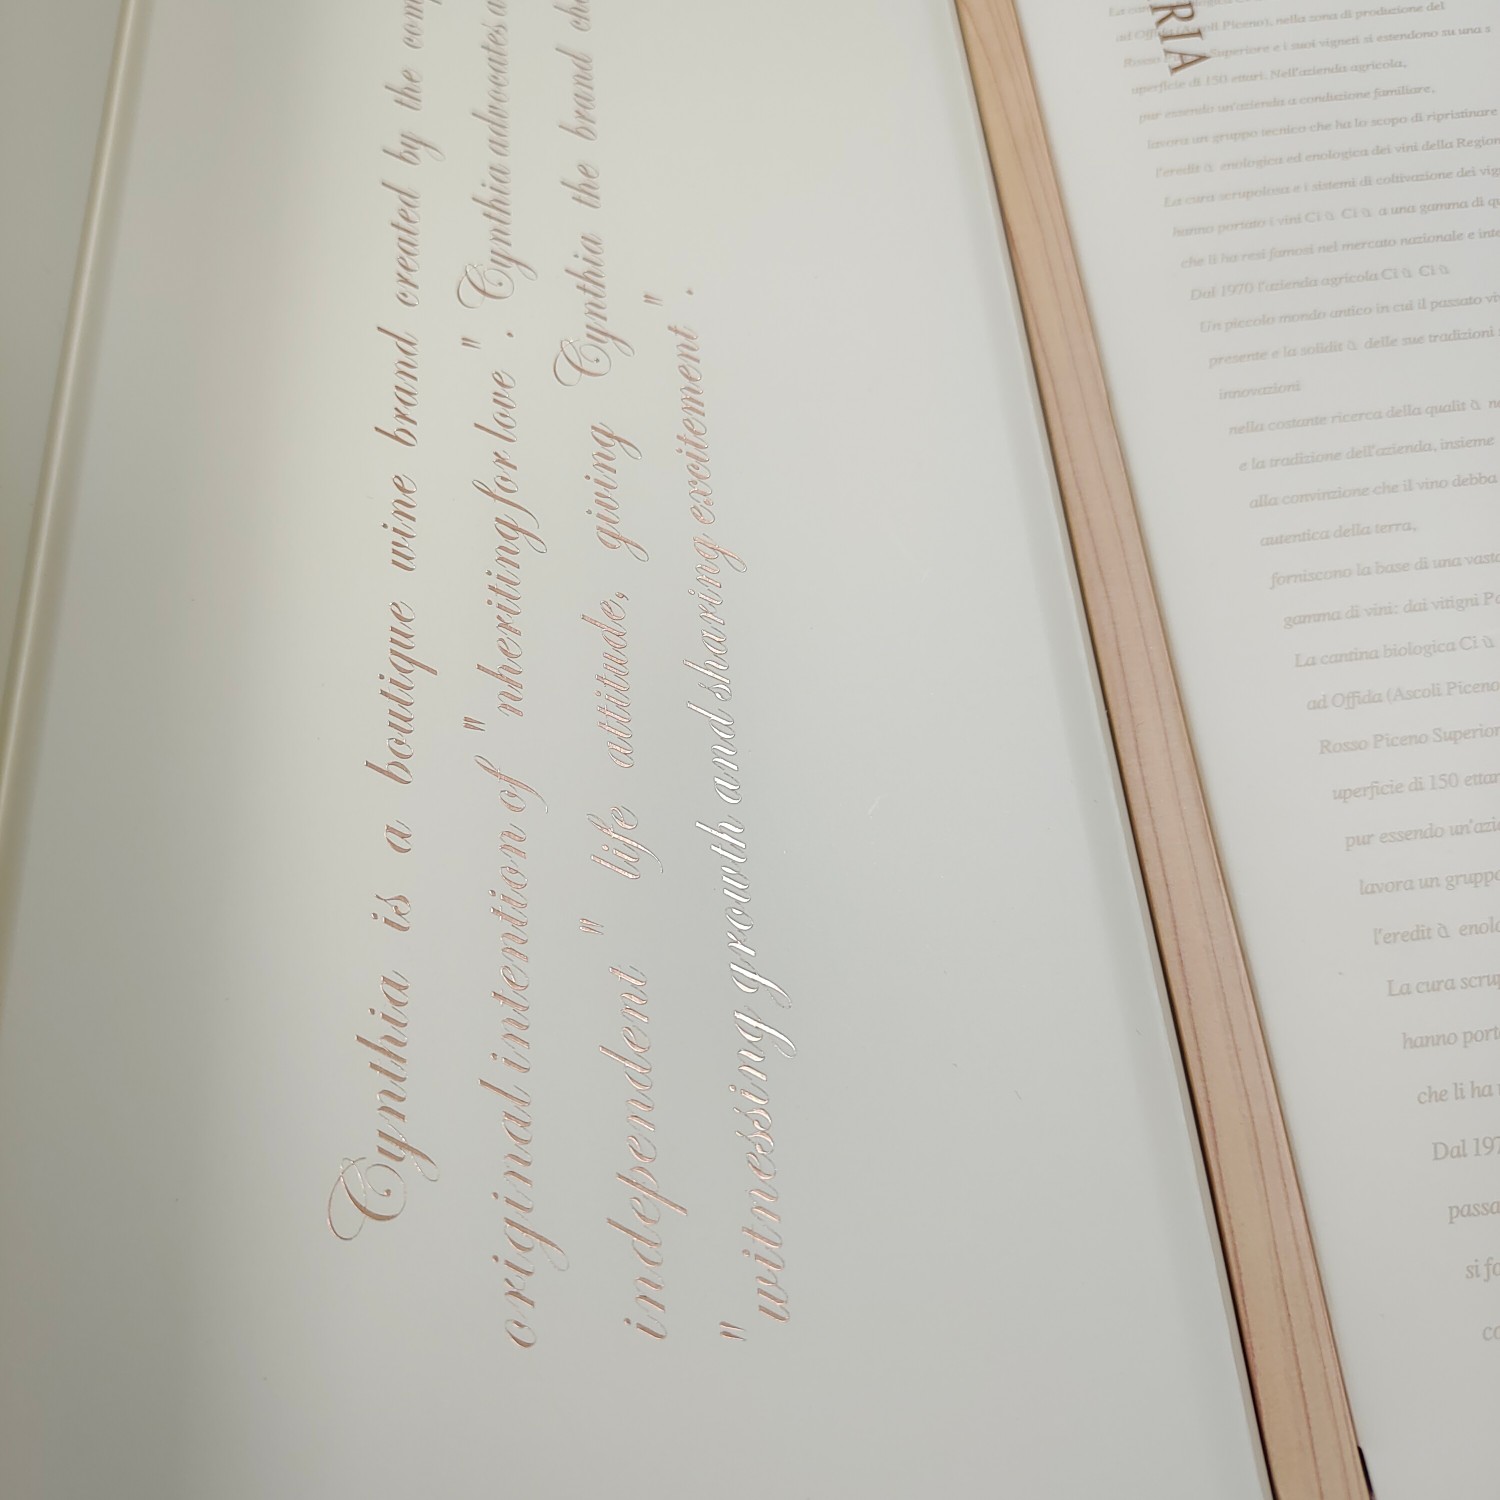 Cynthia is a boutique wine brand created by the
original intention of "nheriting for love". Cynthia advocates
independent" life attitude, giving Cynthia the brand
"witnessing growth and sharing excitement".
RIA
Piceno), nella zona di produzione del
Superiore e i suoi vigneti si estendono su una
uperficie di 150 ettari. Nell'azienda agricola,
pur essendo un'azienda a conduzione familiare,
lavora un gruppo tecnico che ha lo scopo di ripristinare
l'eredit à enologica ed enologica dei vini della
La cura scrupolosa e i sistemi di coltivazione dei
hanno portato i vini Ci ù Ci ù a una gamma di
che li ha resi famosi nel mercato nazionale e
Dal 1970 l'azienda agricola Ci ù Ci ù
Un piccolo mondo antico in cui il passato
presente e la solidit à delle sue tradizioni
innovazioni
nella costante ricerca della qualit à
e la tradizione dell'azienda, insieme
alla convinzione che il vino debba
autentica della terra,
forniscono la base di una vasta
gamma di vini: dai vitigni
La cantina biologica Ci ù
ad Offida (Ascoli Piceno
Rosso Piceno
uperficie di 150
pur essendo
lavora un
l'eredit à
La cura
hanno
che li ha
Dal